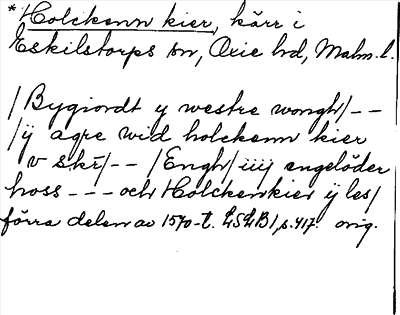 * Holckenn kier, kärr i
Eskilstorps sn, Oxie hd, Malm. l.
/Bygiordt y westre wongh/--
/ÿ agre wid holckenn kier
v skr̄/-- /Engh/ iiij engelöder
hoss --- och Holckenkier ÿ les/
förra delen av 1570-t. LSLB1, s. 417. orig.